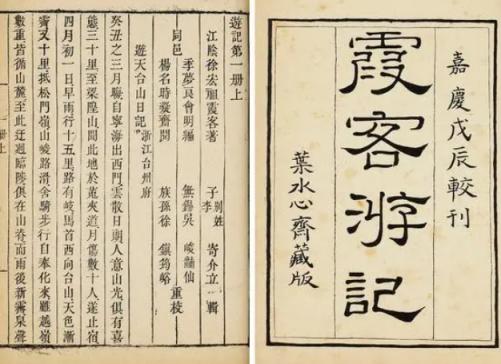 嘉慶戊辰較刊
霞客游記
葉水心齋藏版
遊記第一冊上
江陰徐宏祖霞客著 子李別姓寄介立輯
同邑
季夢良會明編 無錫吳峻
楊名時凝齋閱 族孫徐鎮筠峪
重梓
遊天台山日記 浙江台州府
癸丑之三月晦自寧海出西門雲散日朗人意山光俱有喜
態三十里至梁隍山聞此地於菟夾道月傷數十人遂止宿
四月初一日早雨行十五里路有岐馬首西向台山天色漸
霽又十里抵松門嶺山峻路滑舍騎步行自奉化來雖越嶺
數重皆循山麓至此迂迴臨陟俱在山脊而雨後新霽泉聲